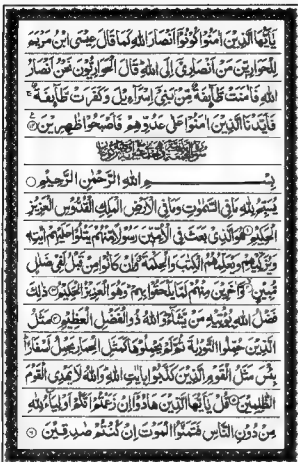 يٰۤاَيُّهَا الَّذِيْنَ اٰمَنُوْا كُوْنُوْۤا اَنْصَارَ اللّٰهِ كَمَا قَالَ عِيْسَى ابْنُ مَرْيَمَ
لِلْحَوَارِيّٖنَ مَنْ اَنْصَارِيْۤ اِلَى اللّٰهِ قَالَ الْحَوَارِيُّوْنَ نَحْنُ اَنْصَارُ
اللّٰهِ فَاٰمَنَتْ طَّآئِفَةٌ مِّنْۢ بَنِيْۤ اِسْرَآءِيْلَ وَكَفَرَتْ طَّآئِفَةٌ
فَاَيَّدْنَا الَّذِيْنَ اٰمَنُوْا عَلٰى عَدُوِّهِمْ فَاَصْبَحُوْا ظٰهِرِيْنَ
بِسْمِ اللّٰهِ الرَّحْمٰنِ الرَّحِيْمِ
يُسَبِّحُ لِلّٰهِ مَا فِي السَّمٰوٰتِ وَمَا فِي الْاَرْضِ الْمَلِكِ الْقُدُّوْسِ الْعَزِيْزِ
الْحَكِيْمِ هُوَ الَّذِيْ بَعَثَ فِي الْاُمِّيّٖنَ رَسُوْلًا مِّنْهُمْ يَتْلُوْا عَلَيْهِمْ اٰيٰتِهٖ
وَيُزَكِّيْهِمْ وَيُعَلِّمُهُمُ الْكِتٰبَ وَالْحِكْمَةَ وَاِنْ كَانُوْا مِنْ قَبْلُ لَفِيْ ضَلٰلٍ
مُّبِيْنٍ وَّاٰخَرِيْنَ مِنْهُمْ لَمَّا يَلْحَقُوْا بِهِمْ وَهُوَ الْعَزِيْزُ الْحَكِيْمُ ذٰلِكَ
فَضْلُ اللّٰهِ يُؤْتِيْهِ مَنْ يَّشَآءُ وَاللّٰهُ ذُو الْفَضْلِ الْعَظِيْمِ مَثَلُ
الَّذِيْنَ حُمِّلُوا التَّوْرٰىةَ ثُمَّ لَمْ يَحْمِلُوْهَا كَمَثَلِ الْحِمَارِ يَحْمِلُ اَسْفَارًا
بِئْسَ مَثَلُ الْقَوْمِ الَّذِيْنَ كَذَّبُوْا بِاٰيٰتِ اللّٰهِ وَاللّٰهُ لَا يَهْدِي الْقَوْمَ
الظّٰلِمِيْنَ قُلْ يٰۤاَيُّهَا الَّذِيْنَ هَادُوْۤا اِنْ زَعَمْتُمْ اَنَّكُمْ اَوْلِيَآءُ لِلّٰهِ
مِنْ دُوْنِ النَّاسِ فَتَمَنَّوُا الْمَوْتَ اِنْ كُنْتُمْ صٰدِقِيْنَ